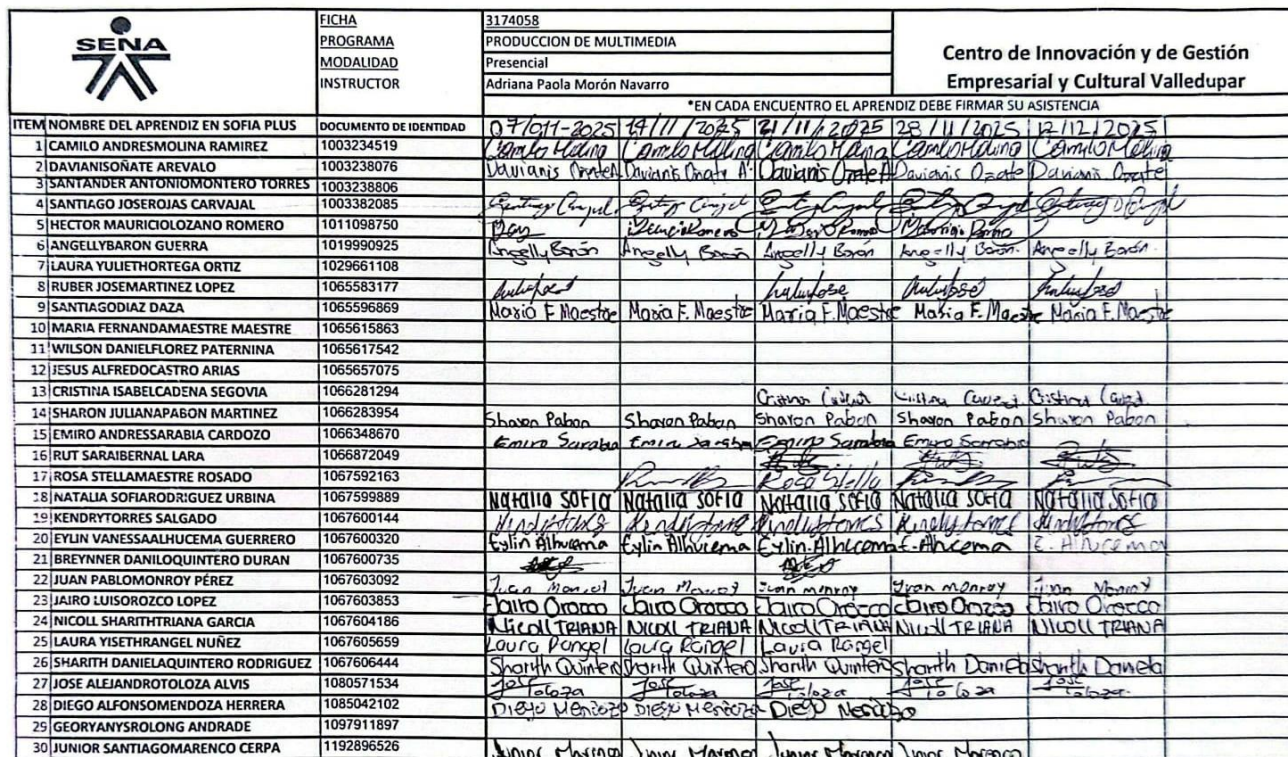 SENA
FICHA 3174058
PROGRAMA PRODUCCION DE MULTIMEDIA
MODALIDAD Presencial
INSTRUCTOR Adriana Paola Morón Navarro
Centro de Innovación y de Gestión
Empresarial y Cultural Valledupar
*EN CADA ENCUENTRO EL APRENDIZ DEBE FIRMAR SU ASISTENCIA
ITEM NOMBRE DEL APRENDIZ EN SOFIA PLUS DOCUMENTO DE IDENTIDAD 07/011-2025 14/11/2025 21/11/2025 28/11/2025 12/12/2025
1 CAMILO ANDRESMOLINA RAMIREZ 1003234519 Camilo Molina Camilo Molina Camilo Molina Camilo Molina Camilo Molina
2 DAVIANISOÑATE AREVALO 1003238076 Davianis Oñate A Davianis Oñate A Davianis Oñate A Davianis Oñate Davianis Oñate
3 SANTANDER ANTONIOMONTERO TORRES 1003238806
4 SANTIAGO JOSEROJAS CARVAJAL 1003382085
5 HECTOR MAURICIOLOZANO ROMERO 1011098750
6 ANGELLYBARON GUERRA 1019990925 Angelly Barón Angelly Barón Angelly Barón Angelly Barón Angelly Barón
7 LAURA YULIETHORTEGA ORTIZ 1029661108
8 RUBER JOSEMARTINEZ LOPEZ 1065583177
9 SANTIAGODIAZ DAZA 1065596869 Maria F Maestre Maria F. Maestre Maria F. Maestre Maria F. Maestre Maria F. Maestre
10 MARIA FERNANDAMAESTRE MAESTRE 1065615863
11 WILSON DANIELFLOREZ PATERNINA 1065617542
12 JESUS ALFREDOCASTRO ARIAS 1065657075
13 CRISTINA ISABELCADENA SEGOVIA 1066281294 Cristina Cristina
14 SHARON JULIANAPABON MARTINEZ 1066283954 Sharon Pabon Sharon Pabon Sharon Pabon Sharon Pabon Sharon Pabon
15 EMIRO ANDRESSARABIA CARDOZO 1066348670 Emiro Sarabia Emiro Sarabia Emiro Sarabia Emiro Sarabia
16 RUT SARAIBERNAL LARA 1066872049
17 ROSA STELLAMAESTRE ROSADO 1067592163 Rosa Stella
18 NATALIA SOFIARODRIGUEZ URBINA 1067599889 Natalia SOFIA Natalia SOFIA Natalia SOFIA Natalia SOFIA Natalia SOFIA
19 KENDRYTORRES SALGADO 1067600144 Kendrytorres Kendrytorres Kendrytorres Kendrytorres Kendrytorres
20 EYLIN VANESSAALHUCEMA GUERRERO 1067600320 Eylin Alhucema Eylin Alhucema Eylin Alhucema E. Alhucema E. Alhucema
21 BREYNNER DANILOQUINTERO DURAN 1067600735
22 JUAN PABLOMONROY PÉREZ 1067603092 Juan Monroy Juan Monroy Juan monroy Juan monroy Juan Monroy
23 JAIRO LUISOROZCO LOPEZ 1067603853 Jairo Orozco Jairo Orozco Jairo Orozco Jairo Orozco Jairo Orozco
24 NICOLL SHARITHTRIANA GARCIA 1067604186 Nicoll TRIANA Nicoll TRIANA Nicoll TRIANA Nicoll TRIANA Nicoll TRIANA
25 LAURA YISETHRANGEL NUÑEZ 1067605659 Laura Rangel Laura Rangel Laura Rangel
26 SHARITH DANIELAQUINTERO RODRIGUEZ 1067606444 Sharith Quintero Sharith Quintero Sharith Quintero Sharith Daniela Sharith Daniela
27 JOSE ALEJANDROTOLOZA ALVIS 1080571534 Jose Toloza Jose Toloza Jose Toloza Jose Toloza Jose Toloza
28 DIEGO ALFONSOMENDOZA HERRERA 1085042102 DIEGO Mendoza DIEGO Mendoza DIEGO Mendoza
29 GEORYANYSROLONG ANDRADE 1097911897
30 JUNIOR SANTIAGOMARENCO CERPA 1192896526 Junior Marenco Junior Marenco Junior Marenco Junior Marenco